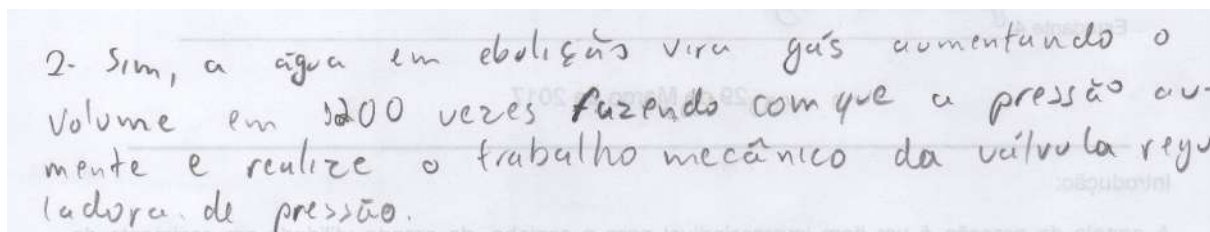 2- Sim, a água em ebolição vira gás aumentando o
volume em 1200 vezes fazendo com que a pressão au-
mente e realize o trabalho mecânico da válvula regu
ladora de pressão.
29 de Março 2017
Introdução: